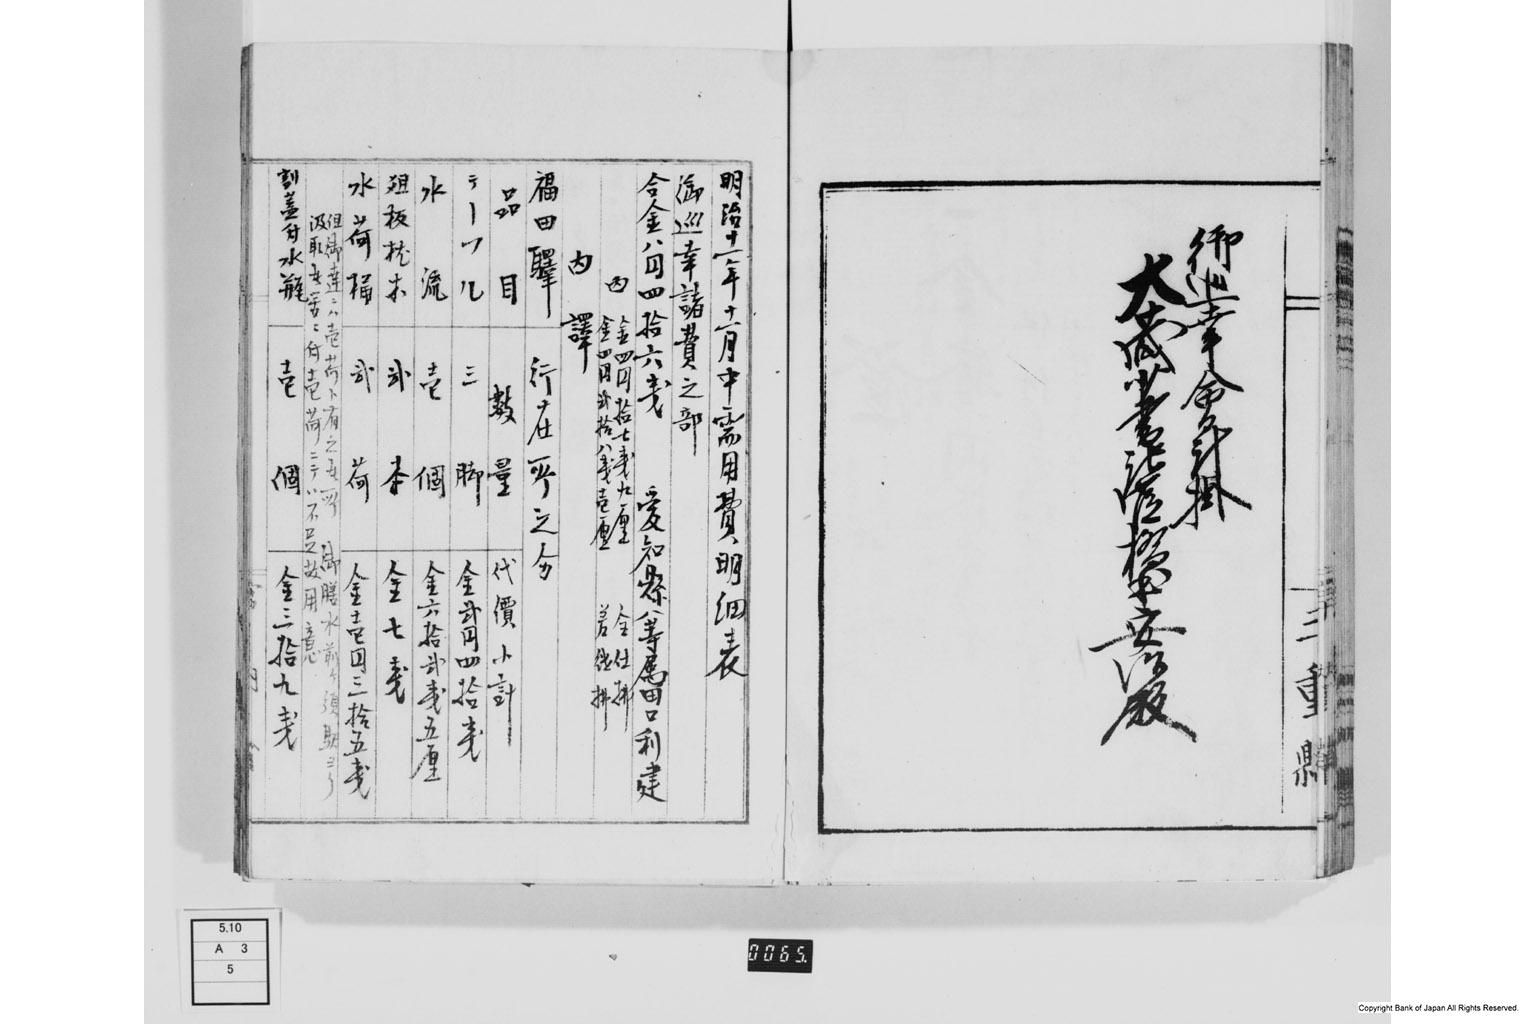 御巡幸会計掛
大蔵少書記官
安治殿
三重縣
明治十一年十一月中需用費明細表
御巡幸諸費之部
合金八円四拾六戔 愛知縣八等属田口利建
内 金四円拾七戔九厘 仕拂
金四円弐拾八戔壱厘 若機拂
内譯
福田驛 行在所之分
品目 数量 代價小計
テーフル 三脚 金弐円四拾戔
水流 壱個 金六拾弐戔五厘
俎板枕木 弐本 金七戔
水荷桶 弐荷 金壱円三拾五戔
但御達ニハ壱荷ト有之 御膳水
汲取 ニ付壱荷ニテハ不足故用意
割蓋付水瓶 壱個 金三拾九戔
5.10
A 3
5
0065.
Copyright Bank of Japan All Rights Reserved.